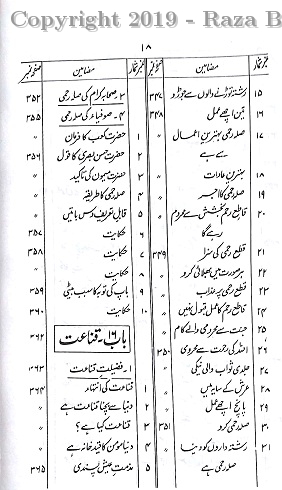 Copyright 2019 - Raza B
۱۸
نمبر شمار مضامین صفحہ نمبر
۱۵ رشتہ توڑنے والوں سے جوڑو ۳۴۷
۱۶ تین اچھے عمل ۳۴۸
۱۷ صلہ رحمی بہترین اعمال سے ہے "
۱۸ بہترین عادات "
۱۹ صلہ رحمی کا اجر "
۲۰ قاطع رحم بخشش سے محروم رہے گا "
۲۱ قطع رحمی کی سزا ۳۴۹
۲۲ ہر صورت میں بھلائی کرو "
۲۳ قطع رحمی پر عذاب "
۲۴ قاطع رحم کا عمل قبول نہیں "
۲۵ جنت سے محرومی والے کام "
۲۶ اللہ کی رحمت سے محرومی ۳۵۰
۲۷ جلدی ثواب والی نیکی "
۲۸ عرش کے سایہ میں "
۲۹ پانچ اچھے عمل "
۳۰ صلہ رحمی کرو ۳۵۱
۳۱ رشتہ داروں کو دینا صلہ رحمی ہے "
نمبر شمار مضامین صفحہ نمبر
۳۔ صحابہ کرام کی صلہ رحمی ۳۵۲
۴۔ صوفیاء کی صلہ رحمی ۳۵۵
۱ حضرت کعب کا فرمان "
۲ حضرت حسن بصری کا قول ۳۵۶
۳ حضرت میمون کی تاکید "
۴ صلہ رحمی کا طریقہ "
۵ قابل تعریف دس باتیں "
۶ حکایت ۳۵۷
۷ حکایت ۳۵۸
۸ حکایت "
۹ باپ کی توبہ کا سبب بیٹی ۳۵۹
۱۰ حکایت "
باب ۱۶۔ قناعت ۳۶۲
۱۔ فضیلت قناعت ۳۶۳
۱ قناعت کی انتہاء ۳۶۴
۲ دنیا سے بچنا قناعت ہے "
۳ قناعت کیا ہے؟ "
۴ دنیا مومن کا قید خانہ ہے "
۵ مذمت عیش پسندی ۳۶۵